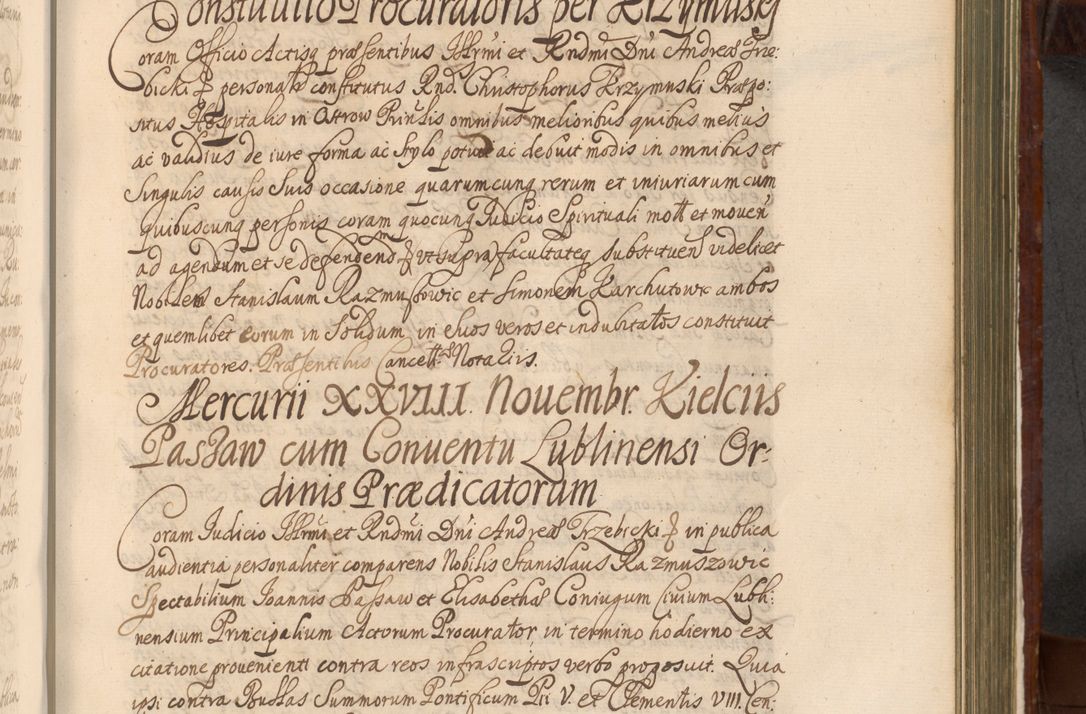 Constitutio Procuratoris per Krzymuskj
Coram Officio Actisq præsentibus Illrmi et Rndmi Dni Andreæ Trze-
bicki personalr constitutus Rnd. Christophorus Krzymuski Præpo:
situs Hospitalis in Ostrow Prinsis omnibus melioribus quibus melius
ac validius de iure forma ac stylo potuit ac debuit modis in omnibus et
singulis causis suis occasione quarumcunq rerum et iniuriarum cum
quibuscunq personis coram quocunq Judicio Spirituali mott et mouen
ad agendum et se defendend ut supra facultateq substituen videlicet
Nobilem Stanislaum Razmussowic et Simonem Karchutowic ambos
et quemlibet eorum in solidum in suos veros et indubitatos constituit
Procuratores. Præsentibus Cancell. Notariis.
Mercurii XXVIII. Nouembr. Kielciis
Paszaw cum Conuentu Lublinensi Or-
dinis Prædicatorum
Coram Judicio Illrmi et Rndmi Dni Andreæ Trzebicki in publica
audientia personaliter comparens Nobilis Stanislaus Razmuszowic
Spectabilium Joannis Passaw et Elisabethæ Coniugum Ciuium Lubli-
nensium Principalium Actorum Procurator in termino hodierno ex
citatione prouenienti contra reos infrascriptos verbo proposuit. Quia
ipsi contra Bullas Summorum Pontificum Pii V. et Clementis VIII. Cen: